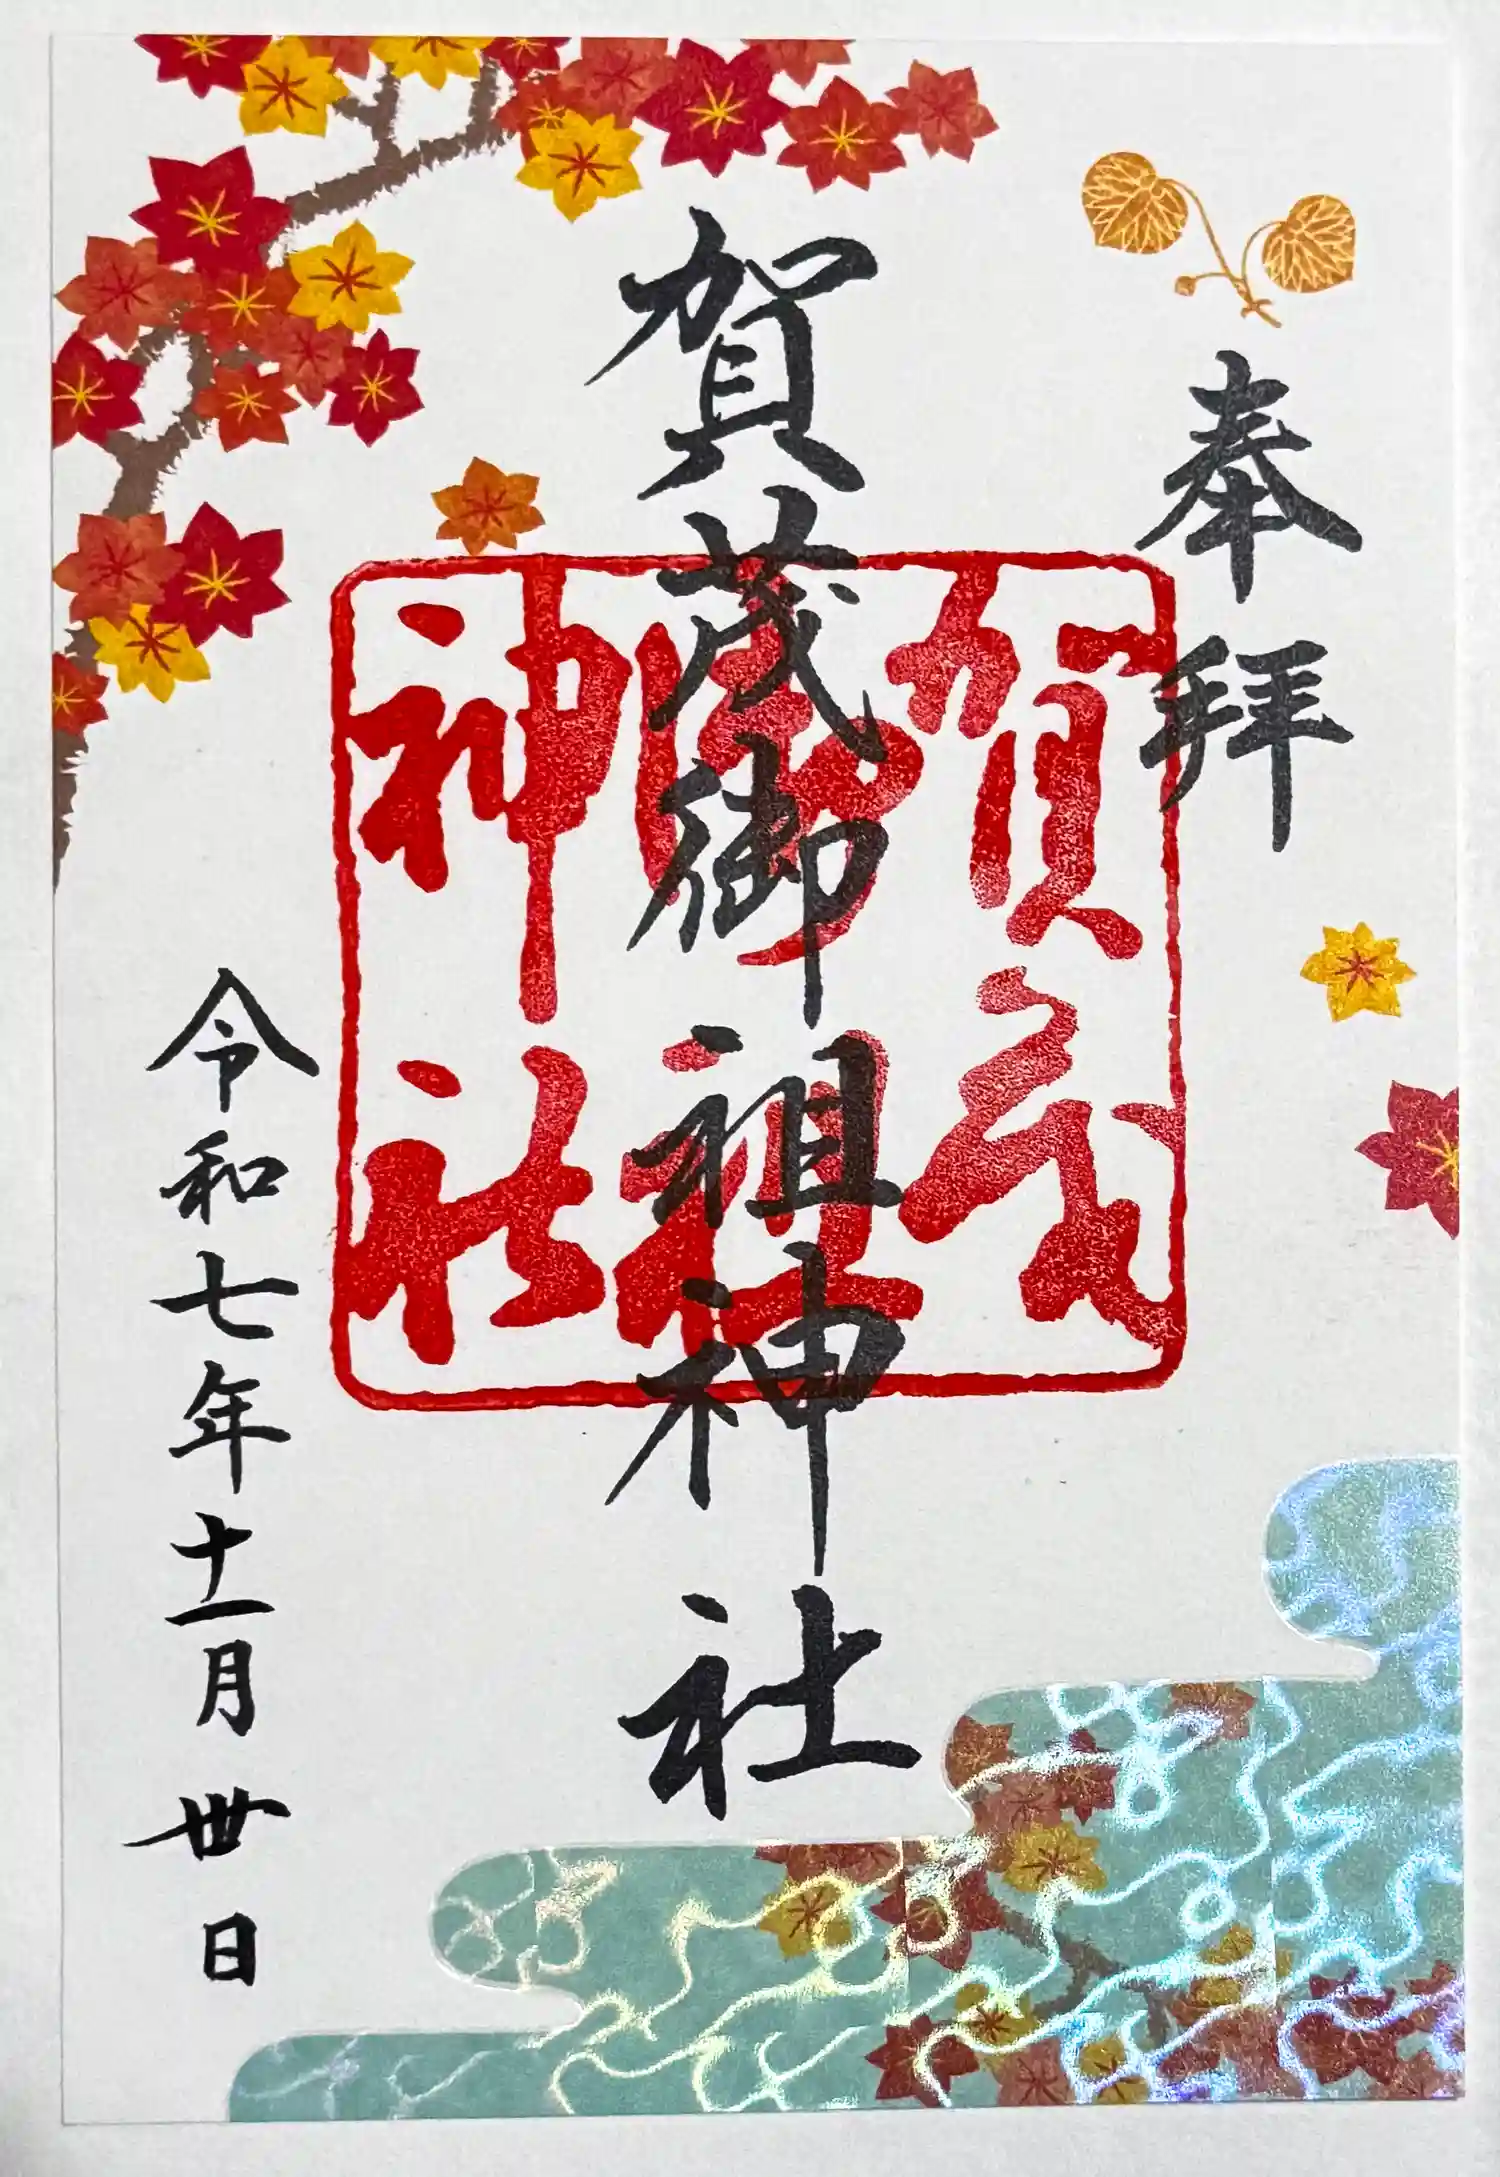 奉拝
賀茂御祖神社
賀茂
御祖
神社
令和七年十一月卅日